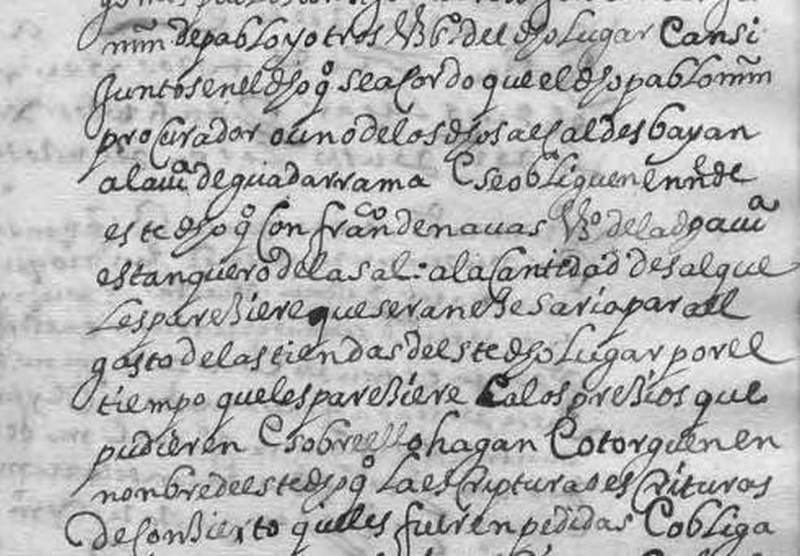 mrn de pablo y otros Vºs del dho lugar E ansi
Juntos en el dho qº se aCordo que el dho pablo mrn
proCurador o uno de los dhos alCaldes bayan
a la viª de guadarrama E se obliguen En nre de
este dho qº Con franco de nauas Vº de la dha viª
estanquero de la sal: a la Cantidad de sal que
Les pareziere que sera nezesaria para el
gasto de las tiendas deste dho Lugar por el
tiempo que les pareziere E a los prezios que
pudieren E sobre ello hagan E otorguen en
nonbre deeste dho qº La esCriptura o esCrituras
de Conzierto que les fueren pedidas E obliga